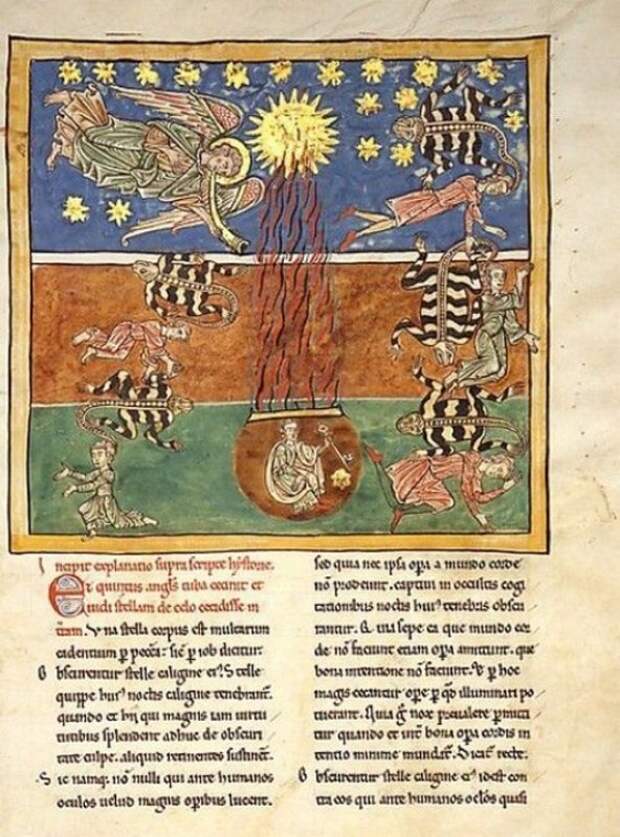 Incipit explanatio supra scripte hystorie.
Et quintus angls tuba cecinit et
Uidi stellam de celo cecidisse in
tram. Vna stella corpus est multarum
cadentium p pecca. sic p iob dicitur
Obscurentur stelle caligine ei. Stelle
quippe hui noctis caligine tenebrant.
quando et hii qui magnis iam uirtu
tutibus splendent adhuc de obscuri
tate culpe. aliquid retinentes sustinet.
Sic namq. nō nulli qui ante humanos
oculos uelud magnis opribus lucent.
sed quia nec ipsa opa a mundo corde
nō prodeunt. captiui in occultis cogi
tationibus noctis hui tenebris obscu
rantur. sepe ea que mundo cor
de nō faciunt etiam opa amittunt. que
bona intentione nō faciunt. p hoc
magis cecantur ope p qd illuminari po
tuerant. Quia g nox preualere pmitti
tur quando et bona opa cordis in
tentio minime mundat. Dicat recte.
Obscurentur stelle caligine ei idest con
tra eos qui ante humanos oclos quasi